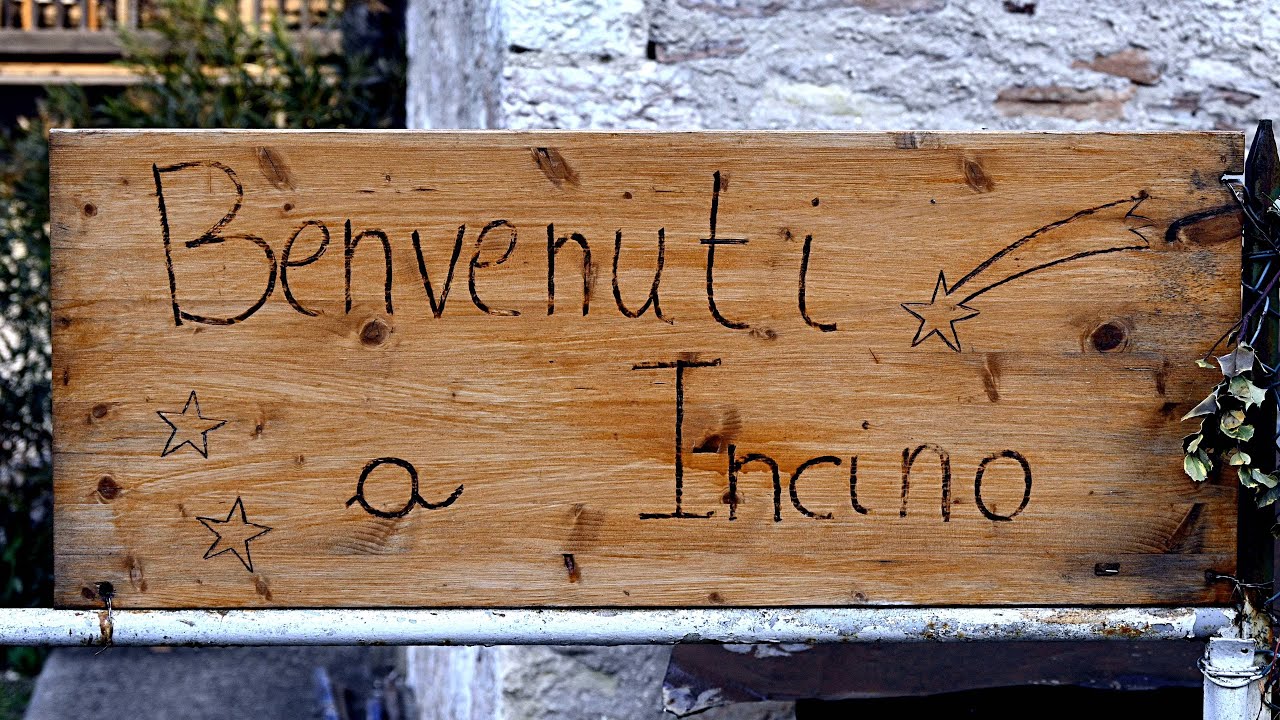 Benvenuti
a Incino